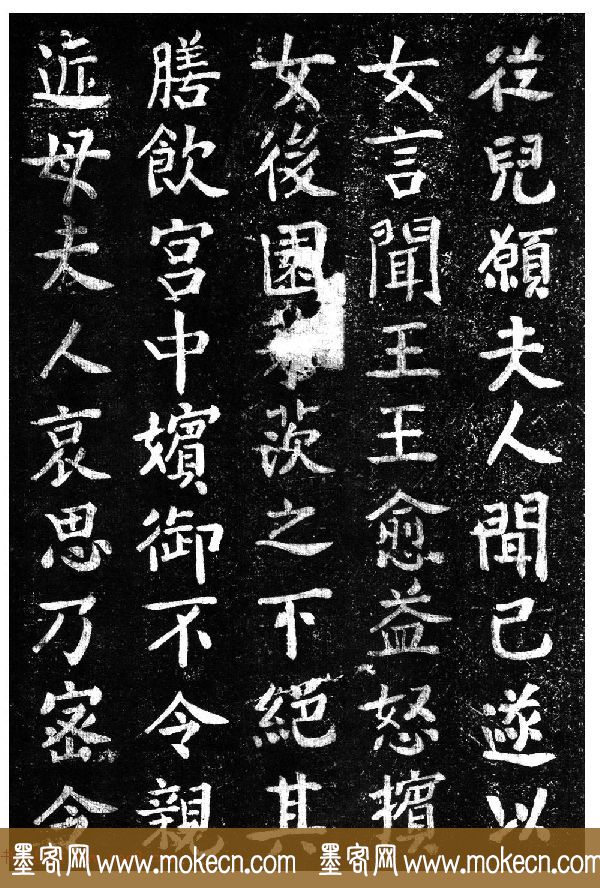 從兒願夫人聞已遂以
女言聞王王愈益怒擯
女後園茨之下絕其
膳飲宮中嬪御不令親
近母夫人哀思乃密令
墨客网 www.mokecn.com 墨客网 www.mokecn.com